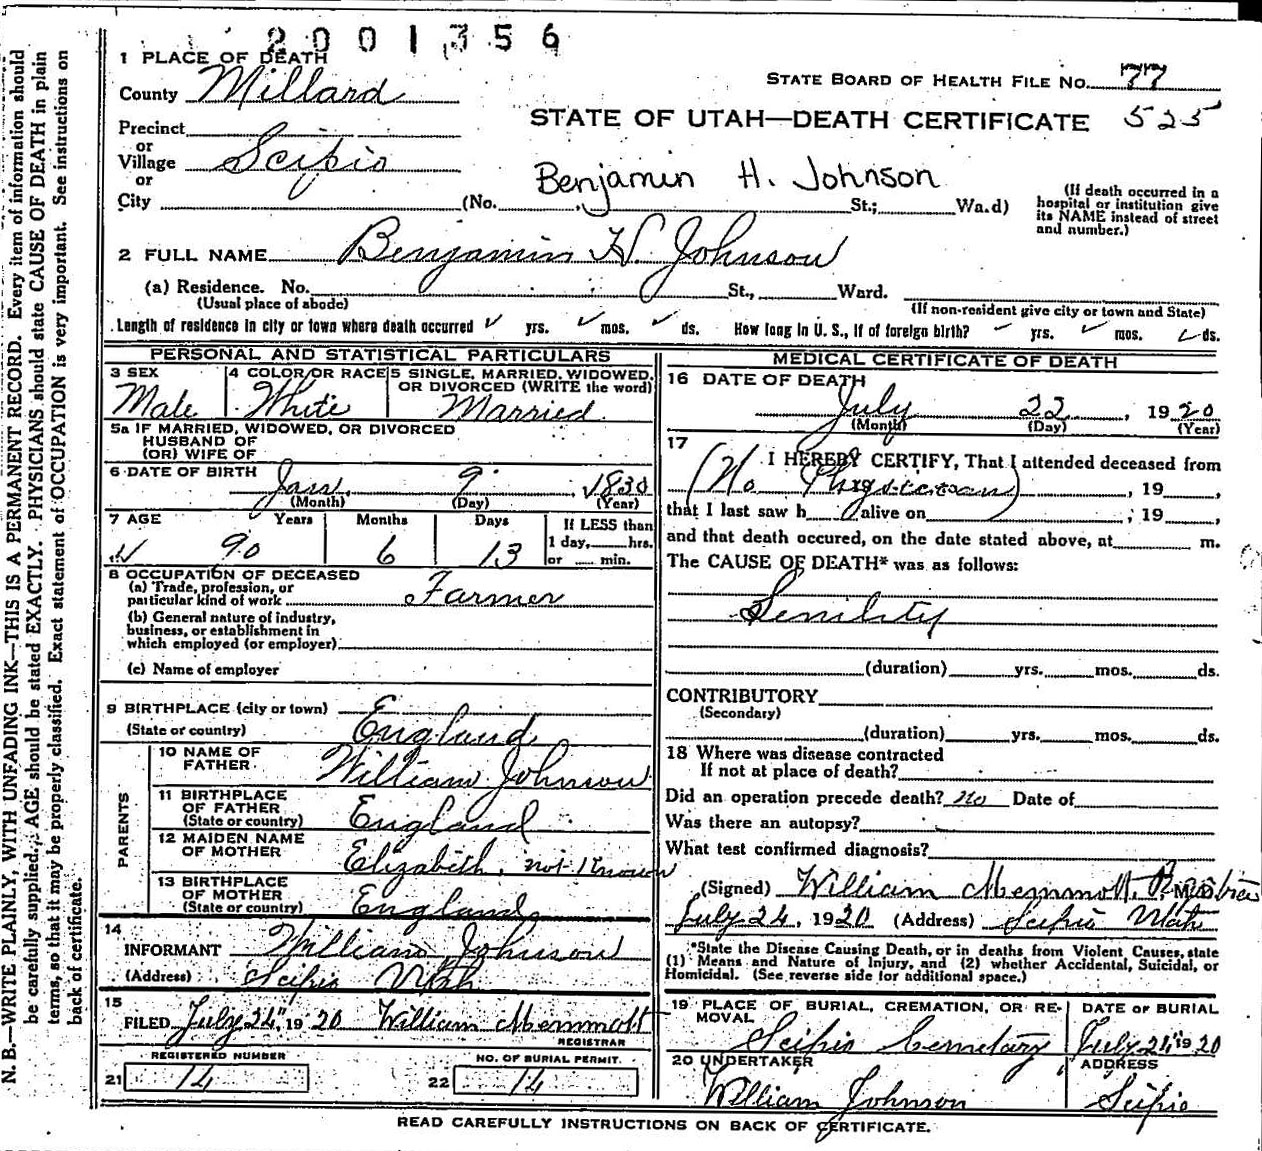 2001356
1 PLACE OF DEATH
County Millard
STATE BOARD OF HEALTH FILE No. 77
STATE OF UTAH—DEATH CERTIFICATE 525
Precinct
or
Village Scipio
or
City (No. St.; Wa.d)
Benjamin H. Johnson
(If death occurred in a
hospital or institution give
its NAME instead of street
and number.)
2 FULL NAME Benjamin H. Johnson
(a) Residence. No. St., Ward.
(Usual place of abode)
(If non-resident give city or town and State)
Length of residence in city or town where death occurred yrs. mos. ds. How long in U. S., if of foreign birth? yrs. mos. ds.
PERSONAL AND STATISTICAL PARTICULARS
3 SEX
Male
4 COLOR OR RACE
White
5 SINGLE, MARRIED, WIDOWED,
OR DIVORCED (WRITE the word)
Married
5a IF MARRIED, WIDOWED, OR DIVORCED
HUSBAND OF
(OR) WIFE OF
6 DATE OF BIRTH Jan. 9 1830
(Month) (Day) (Year)
7 AGE Years Months Days
90 6 13
If LESS than
1 day, hrs.
or min.
8 OCCUPATION OF DECEASED
(a) Trade, profession, or
particular kind of work Farmer
(b) General nature of industry,
business, or establishment in
which employed (or employer)
(c) Name of employer
9 BIRTHPLACE (city or town)
(State or country) England
PARENTS
10 NAME OF
FATHER William Johnson
11 BIRTHPLACE
OF FATHER
(State or country) England
12 MAIDEN NAME
OF MOTHER Elizabeth, not Known
13 BIRTHPLACE
OF MOTHER
(State or country) England
14
INFORMANT William Johnson
(Address) Scipio Utah
15
FILED July 24" 1920 William Memmott
REGISTRAR
REGISTERED NUMBER
21 14
NO. OF BURIAL PERMIT.
22 14
MEDICAL CERTIFICATE OF DEATH
16 DATE OF DEATH
July 22, 1920
(Month) (Day) (Year)
17
I HEREBY CERTIFY, That I attended deceased from
(No Physician) 19 , 19 ,
that I last saw h alive on , 19 ,
and that death occured, on the date stated above, at m.
The CAUSE OF DEATH* was as follows:
Senility
(duration) yrs. mos. ds.
CONTRIBUTORY
(Secondary)
(duration) yrs. mos. ds.
18 Where was disease contracted
If not at place of death?
Did an operation precede death? No Date of
Was there an autopsy?
What test confirmed diagnosis?
(Signed) William Memmott, M.D.
July 24, 1920 (Address) Scipio Utah
*State the Disease Causing Death, or in deaths from Violent Causes, state
(1) Means and Nature of Injury, and (2) whether Accidental, Suicidal, or
Homicidal. (See reverse side for additional space.)
19 PLACE OF BURIAL, CREMATION, OR RE-
MOVAL
Scipio Cemetary
DATE OF BURIAL
July 24" 1920
20 UNDERTAKER
William Johnson
ADDRESS
Scipio
READ CAREFULLY INSTRUCTIONS ON BACK OF CERTIFICATE.
N. B.—WRITE PLAINLY, WITH UNFADING INK—THIS IS A PERMANENT RECORD. Every item of information should
be carefully supplied. AGE should be stated EXACTLY. PHYSICIANS should state CAUSE OF DEATH in plain
terms, so that it may be properly classified. Exact statement of OCCUPATION is very important. See instructions on
back of certificate.